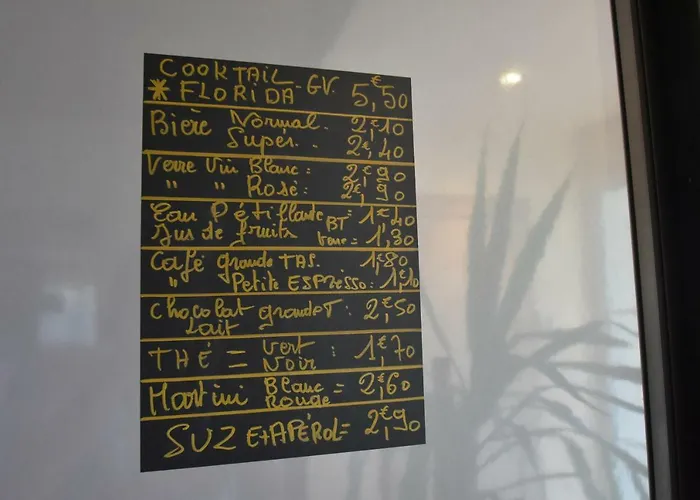 COOKTAIL - GV. 5,€50
* FLORIDA
Bière Normal. 2,€10
Super. . 2,€40
Verre Vin Blanc : 2,€90
" " Rosé : 2,€90
Eau Pétillante BT = 1,€40
Jus de fruits Verre = 1,30
Café grande TAS. 1,€80
" Petite ESPRESSO : 1,€10
Chocolat grande T : 2,€50
lait
THÉ = Vert : 1,€70
Noir
Martini Blanc = 2,€60
Rouge
SUZ Et APÉROL = 2,€90